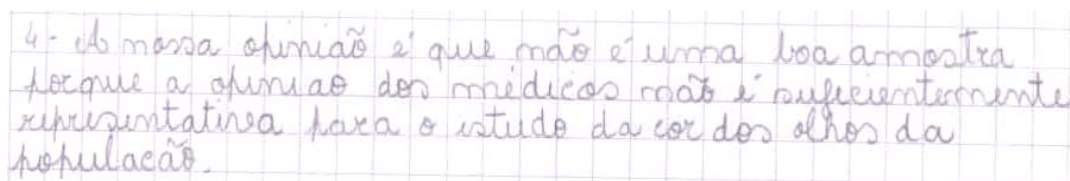 4- A nossa opinião é que não é uma boa amostra
porque a opinião dos médicos não é suficientemente
representativa para o estudo da cor dos olhos da
populacão.